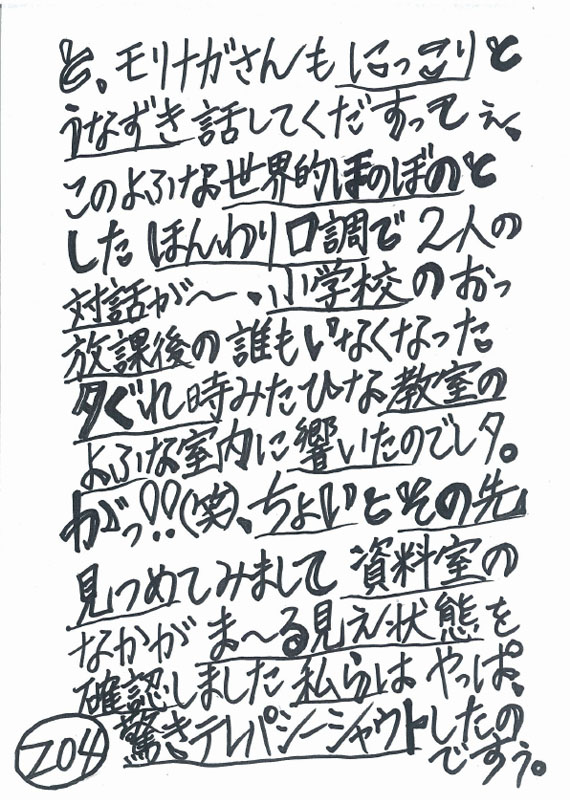 と、モリナガさんもにっこりと
うなずき話してくだすってぇ、
このよふなお世界的ほのぼのと
したほんわり口調で2人の
対話が〜、小学校のおっ
放課後の誰もいなくなった
夕ぐれ時みたひな教室の
よふな室内に響いたのでしタ。
がっ!!(笑)、ちょいとその先
見つめてみまして資料室の
なかがま〜る見え状態を
確認しました私らはやっぱ、
驚きテレパシーシャウトしたの
ですぅ。
204